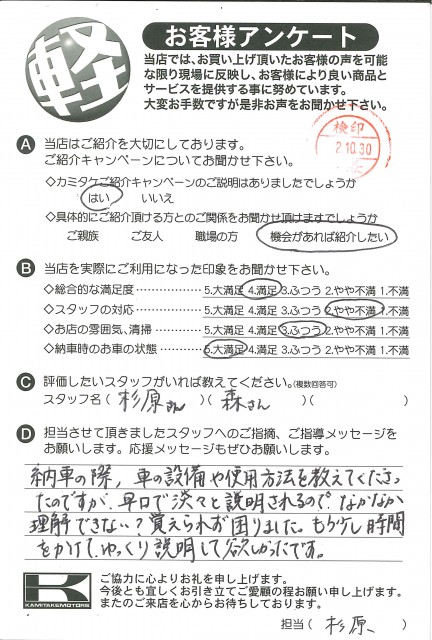 軽
お客様アンケート
当店では、お買い上げ頂いたお客様の声を可能
な限り現場に反映し、お客様により良い商品と
サービスを提供する事に努めています。
大変お手数ですが是非お声をお聞かせ下さい。
検印
2.10.30
A 当店はご紹介を大切にしております。
ご紹介キャンペーンについてお聞かせ下さい。
◇カミタケご紹介キャンペーンのご説明はありましたでしょうか
はい いいえ
◇具体的にご紹介頂ける方とのご関係をお聞かせ頂けますでしょうか
ご親族 ご友人 職場の方 機会があれば紹介したい
B 当店を実際にご利用になった印象をお聞かせ下さい。
◇総合的な満足度 ……………… 5.大満足 4.満足 3.ふつう 2.やや不満 1.不満
◇スタッフの対応 ……………… 5.大満足 4.満足 3.ふつう 2.やや不満 1.不満
◇お店の雰囲気、清掃 ………… 5.大満足 4.満足 3.ふつう 2.やや不満 1.不満
◇納車時のお車の状態 ………… 5.大満足 4.満足 3.ふつう 2.やや不満 1.不満
C 評価したいスタッフがいれば教えてください。(複数回答可)
スタッフ名 ( 杉原さん )( 森さん )( )
D 担当させて頂きましたスタッフへのご指摘、ご指導メッセージを
お願いします。応援メッセージもぜひお願いします。
納車の際、車の設備や使用方法を教えてくださっ
たのですが、早口で淡々と説明されるので、なかなか
理解できない?覚えられず困りました。もう少し時間
をかけて、ゆっくり説明して欲しかったです。
K
KAMITAKEMOTORS
ご協力に心よりお礼を申し上げます。
今後とも宜しくお引き立てご愛顧の程お願い申し上げます。
またのご来店を心からお待ちしております。
担当 ( 杉原 )